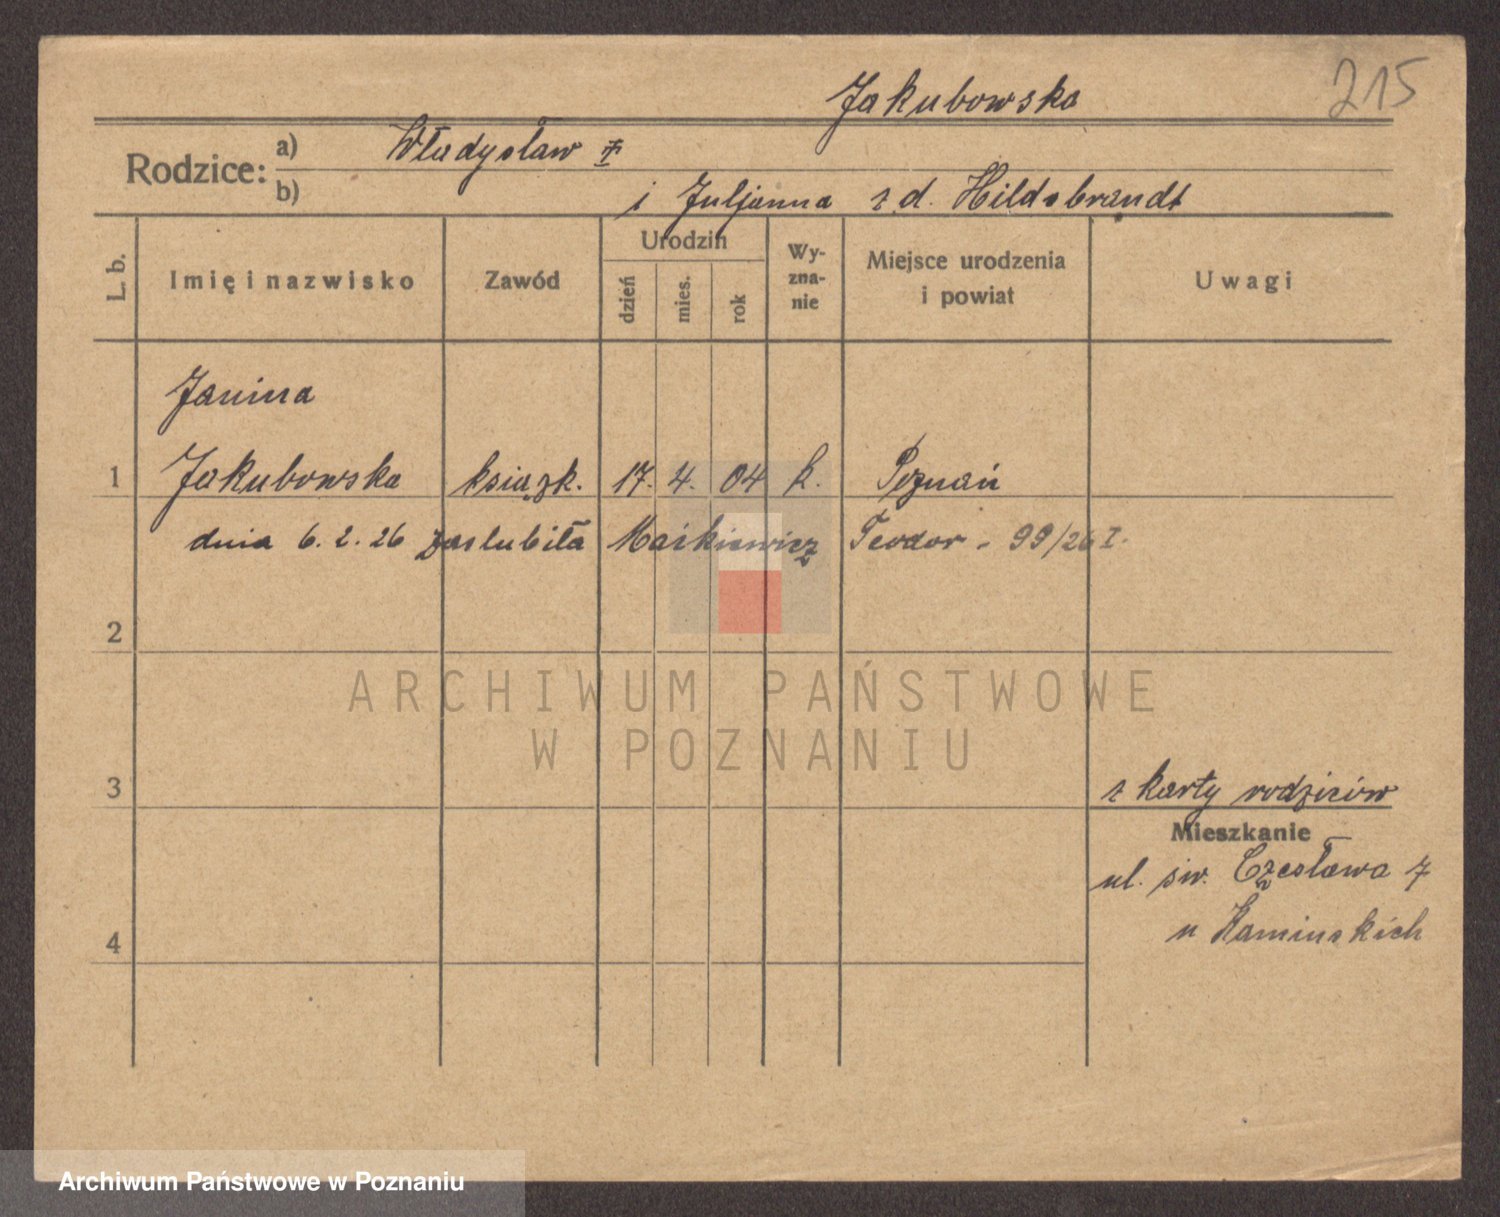 215
Jakubowska
Rodzice: a) Władysław
b) i Juljanna z d. Hildebrandt
L. b.
Imię i nazwisko
Zawód
Urodzin
dzień
mies.
rok
Wy-
zna-
nie
Miejsce urodzenia
i powiat
Uwagi
Janina
1 Jakubowska książk. 17. 4. 04 k. Poznań
dnia 6. 2. 26 zaślubiła Maćkiewicz Teodor - 99/26 I.
2
ARCHIWUM PAŃSTWOWE
W POZNANIU
3
z karty rodziców
Mieszkanie
ul. św. Czesława 7
u Kamińskich
4
Archiwum Państwowe w Poznaniu